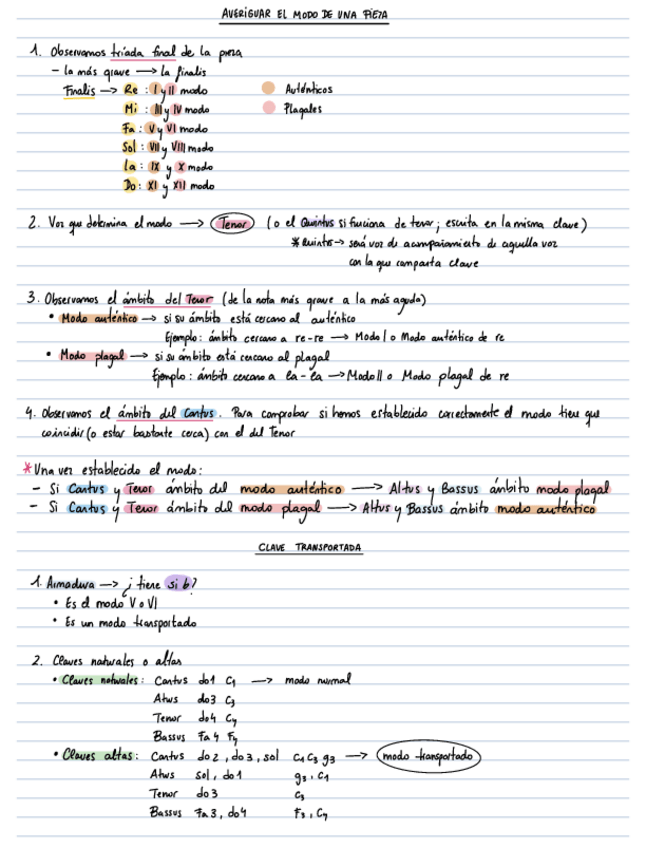 AVERIGUAR EL MODO DE UNA PIEZA
1. Observamos tríada final de la pieza
- la más grave → la finalis
Finalis → Re : I y II modo
Auténticos
Mi : III y IV modo
Plagales
Fa : V y VI modo
Sol : VII y VIII modo
La : IX y X modo
Do : XI y XII modo
2. Voz que determina el modo → Tenor (o el Quintus si funciona de tenor; escrita en la misma clave)
* Quintus → será voz de acompañamiento de aquella voz
con la que comparta clave
3. Observamos el ámbito del Tenor (de la nota más grave a la más aguda)
• Modo auténtico → si su ámbito está cercano al auténtico
Ejemplo: ámbito cercano a re-re → Modo I o Modo auténtico de re
• Modo plagal → si su ámbito está cercano al plagal
Ejemplo: ámbito cercano a la-la → Modo II o Modo plagal de re
4. Observamos el ámbito del Cantus. Para comprobar si hemos establecido correctamente el modo tiene que
coincidir (o estar bastante cerca) con el del Tenor
* Una vez establecido el modo:
- Si Cantus y Tenor ámbito del modo auténtico → Altus y Bassus ámbito modo plagal
- Si Cantus y Tenor ámbito del modo plagal → Altus y Bassus ámbito modo auténtico
CLAVE TRANSPORTADA
1. Armadura → ¿tiene si b?
• Es el modo V o VI
• Es un modo transportado
2. Claves naturales o altas
• Claves naturales: Cantus do1 C1 → modo normal
Altus do3 C3
Tenor do4 C4
Bassus Fa4 F4
• Claves altas: Cantus do2, do3, sol C1 C3 g3 → modo transportado
Altus sol, do1 g3, C1
Tenor do3 C3
Bassus Fa3, do4 F3, C4